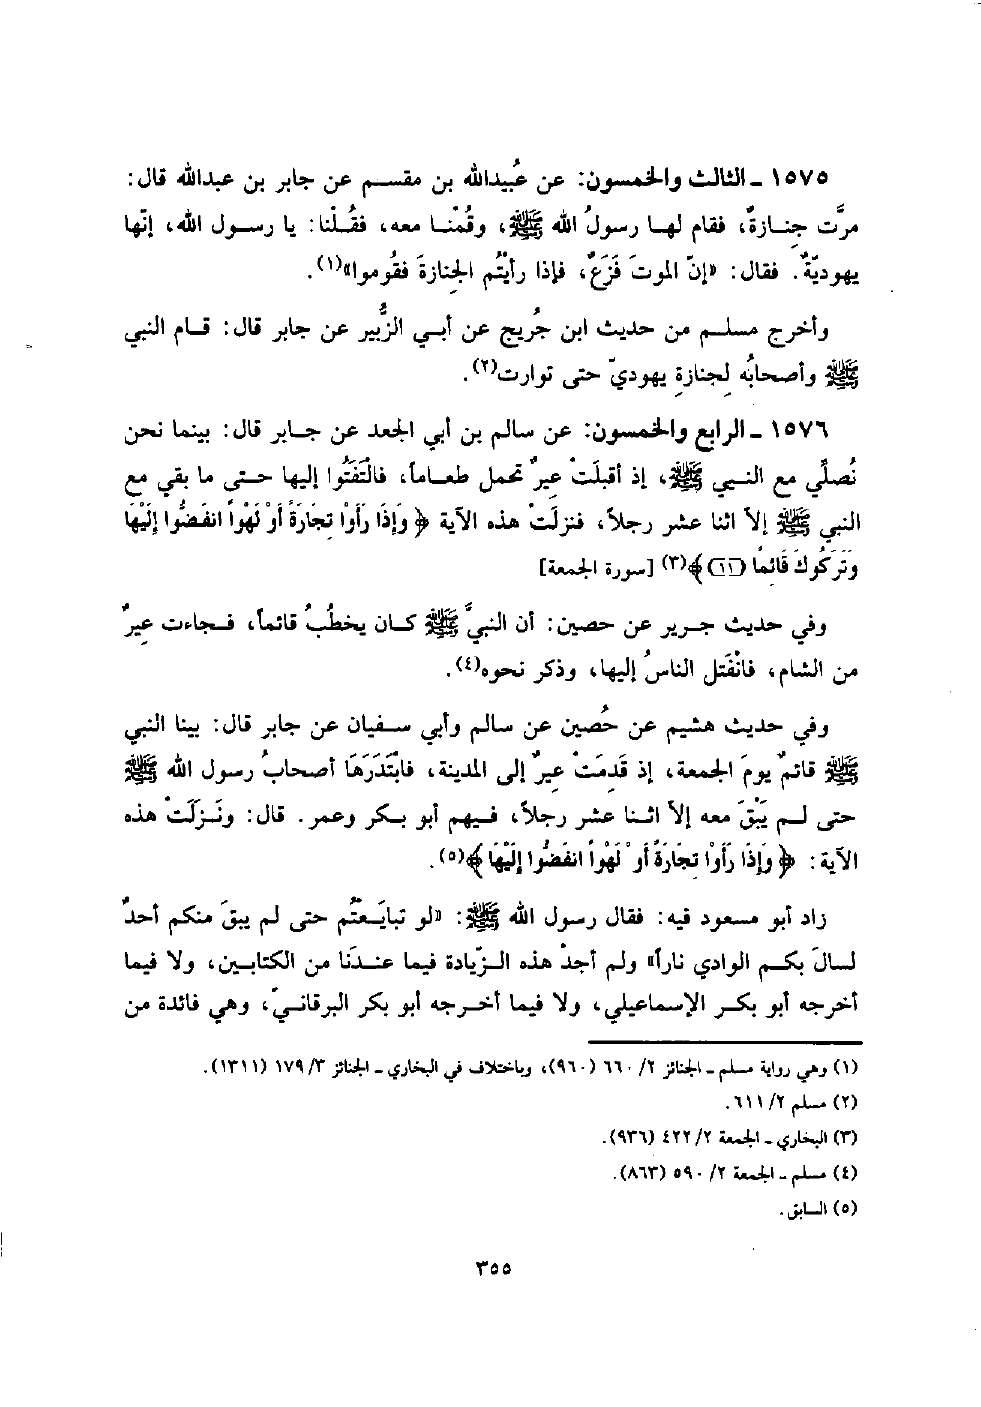 ١٥٧٥ - الثالث والخمسون: عن عُبيدالله بن مقسم عن جابر بن عبدالله قال:
مرَّت جِنازةٌ، فقام لها رسولُ الله ﷺ، وقُمْنا معه، فقُلْنا: يا رسول الله، إنّها
يهوديّةٌ. فقال: «إنّ الموتَ فَزَعٌ، فإذا رأيْتُم الجِنازةَ فقُوموا»(١).
وأخرج مسلم من حديث ابن جُريج عن أبي الزُّبير عن جابر قال: قام النبي
ﷺ وأصحابُه لِجنازةِ يهوديّ حتى توارت(٢).
١٥٧٦ - الرابع والخمسون: عن سالم بن أبي الجعد عن جابر قال: بينما نحن
نُصلّي مع النبي ﷺ، إذ أقبلَتْ عِيرٌ تحمل طعاماً، فالْتَفَتُوا إليها حتى ما بقي مع
النبي ﷺ إلاّ اثنا عشر رجلاً، فنزلَتْ هذه الآية ﴿ وَإِذَا رَأَوْا تِجَارَةً أَوْ لَهْواً انفَضُّوا إِلَيْهَا
وَتَرَكُوكَ قَائِمًا (١١) ﴾(٣) [سورة الجمعة]
وفي حديث جرير عن حصين: أن النبيَّ ﷺ كان يخطُبُ قائماً، فجاءت عِيرٌ
من الشام، فانْفَتل الناسُ إليها، وذكر نحوه(٤).
وفي حديث هشيم عن حُصين عن سالم وأبي سفيان عن جابر قال: بينا النبي
ﷺ قائمٌ يومَ الجمعة، إذ قَدِمَتْ عِيرٌ إلى المدينة، فابْتَدَرَهَا أصحابُ رسول الله ﷺ
حتى لم يَبْقَ معه إلاّ اثنا عشر رجلاً، فيهم أبو بكر وعمر. قال: ونَزلَتْ هذه
الآية: ﴿ وَإِذَا رَأَوْا تِجَارَةً أَوْ لَهْواً انفَضُّوا إِلَيْهَا ﴾(٥).
زاد أبو مسعود فيه: فقال رسول الله ﷺ: «لو تبايَعْتُم حتى لم يبقَ منكم أحدٌ
لسالَ بكم الوادي ناراً» ولم أجدْ هذه الزّيادة فيما عندَنا من الكتابين، ولا فيما
أخرجه أبو بكر الإسماعيلي، ولا فيما أخرجه أبو بكر البرقانيّ، وهي فائدة من
(١) وهي رواية مسلم - الجنائز ٢/ ٦٦٠ (٩٦٠)، وباختلاف في البخاري - الجنائز ٣/ ١٧٩ (١٣١١).
(٢) مسلم ٢/ ٦١١.
(٣) البخاري - الجمعة ٢/ ٤٢٢ (٩٣٦).
(٤) مسلم - الجمعة ٢/ ٥٩٠ (٨٦٣).
(٥) السابق.
٣٥٥